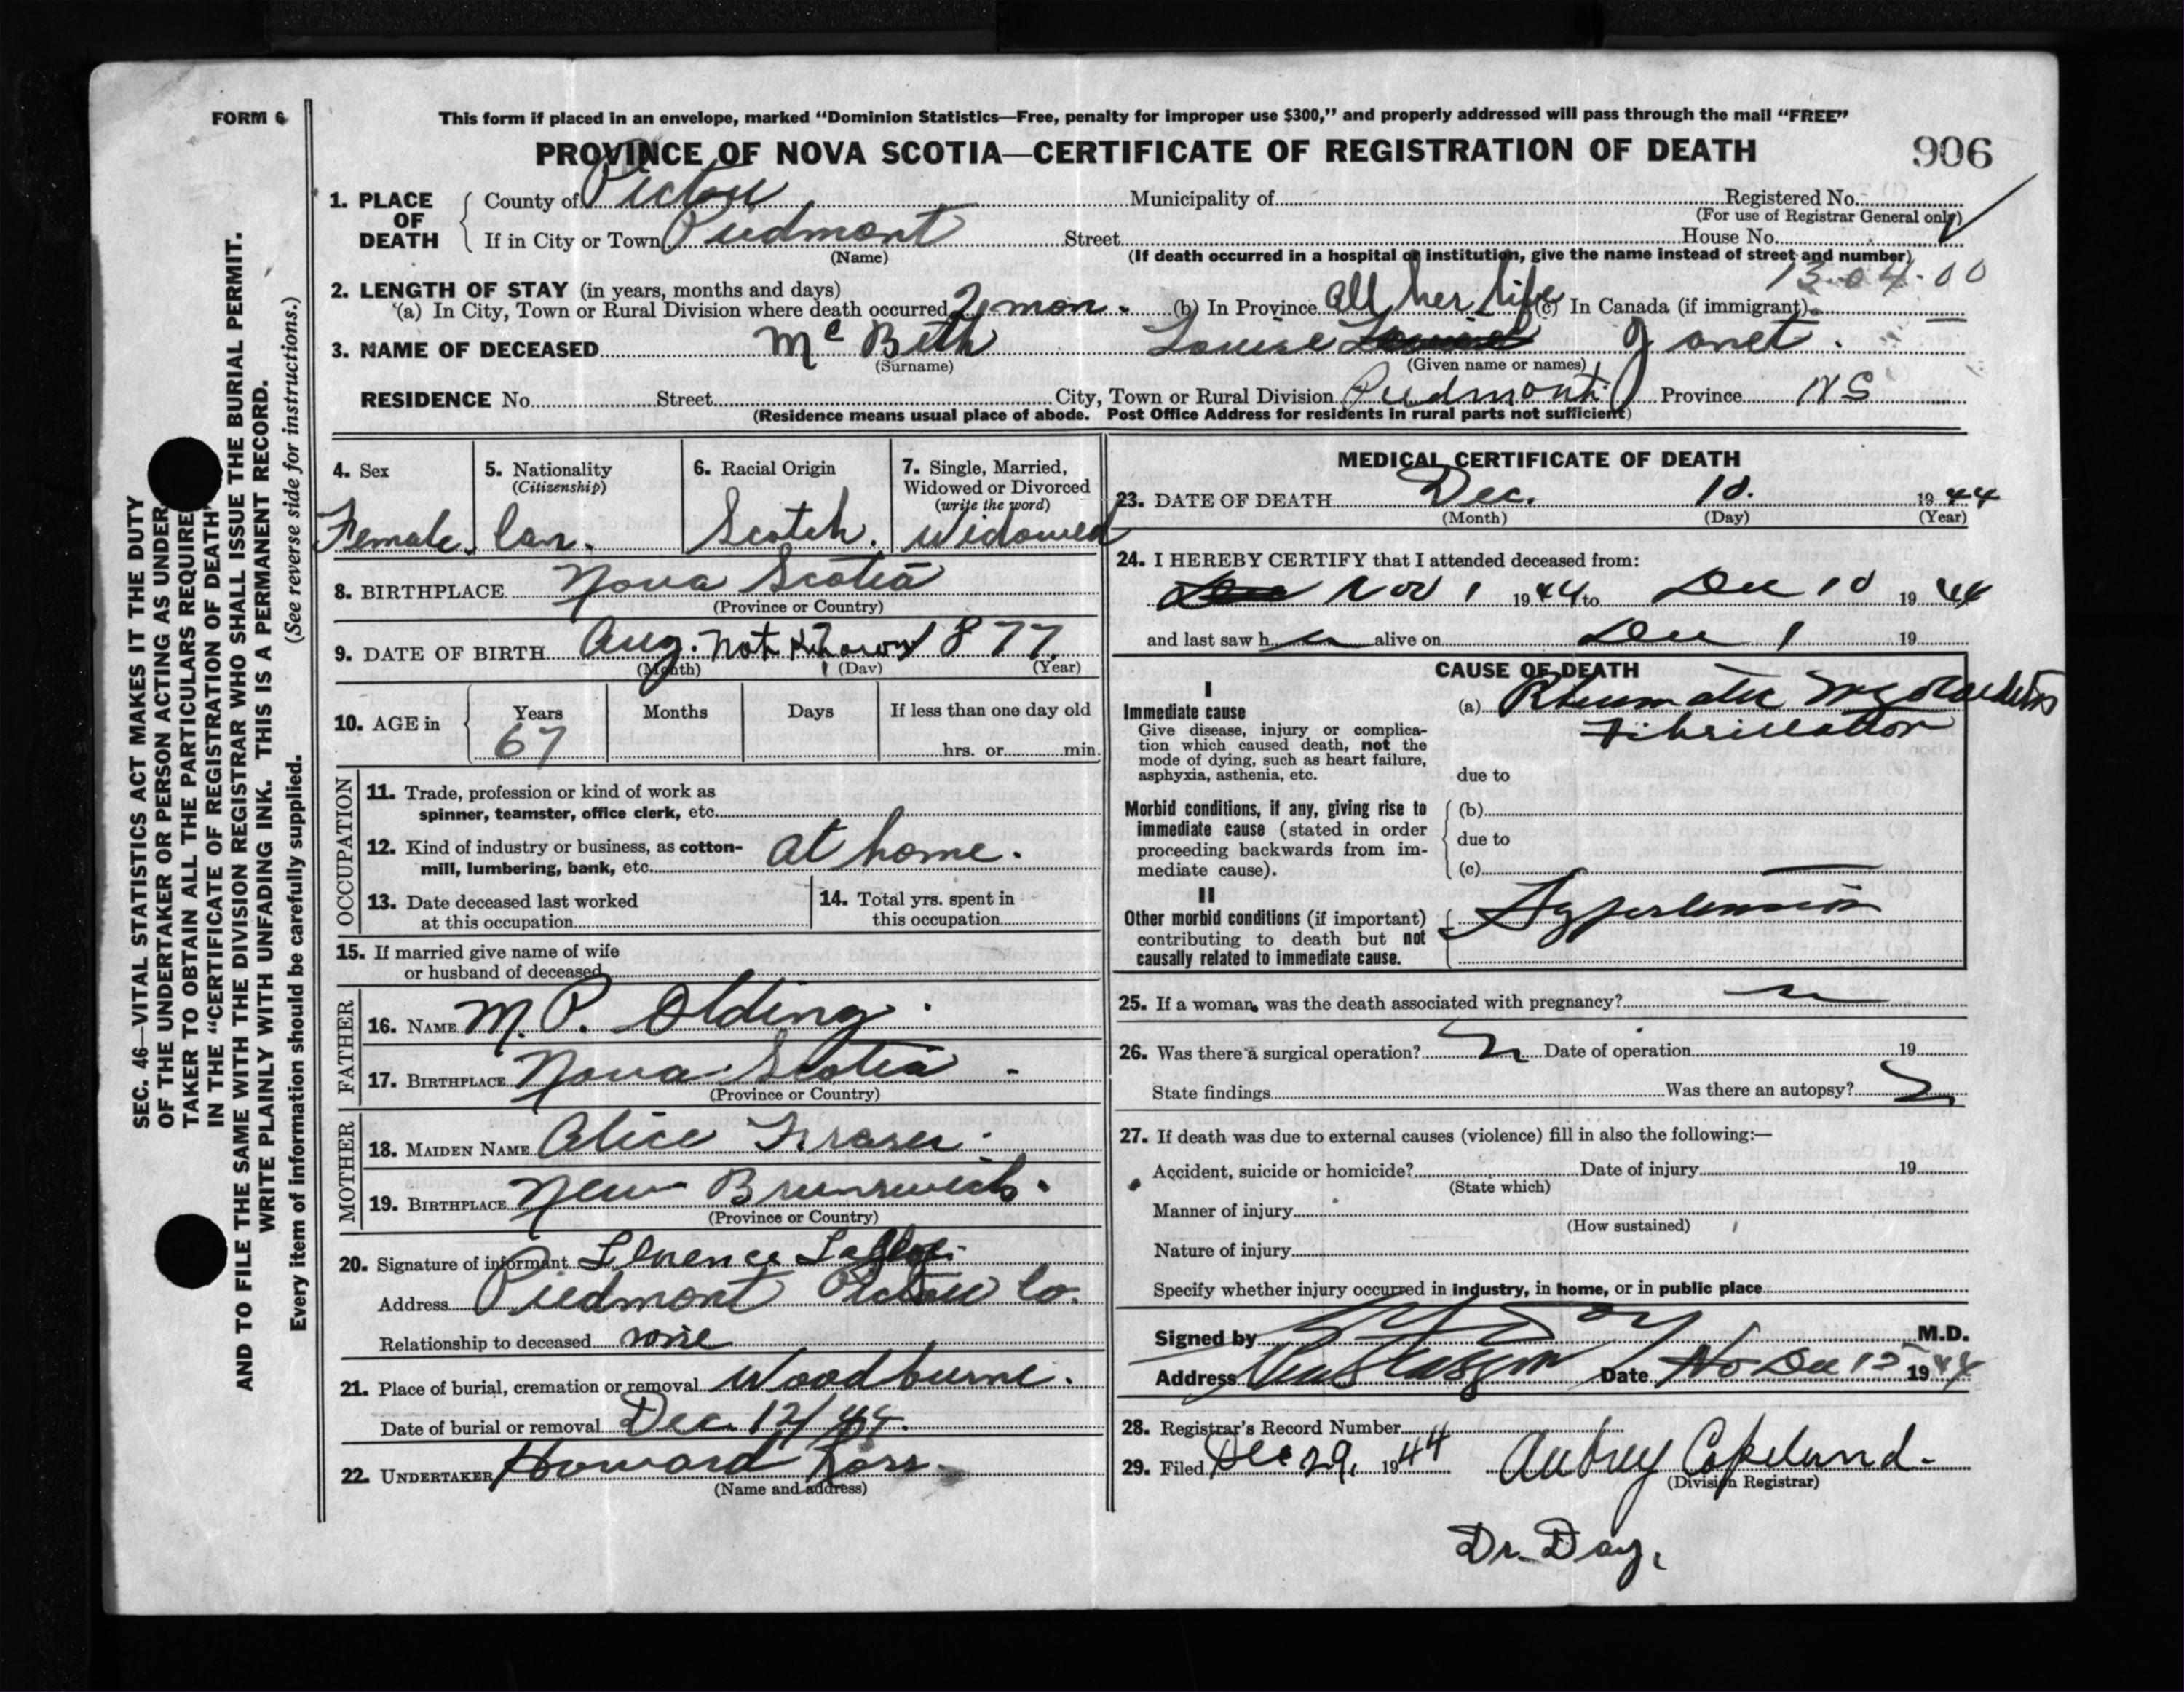 FORM 6
This form if placed in an envelope, marked “Dominion Statistics—Free, penalty for improper use $300,” and properly addressed will pass through the mail “FREE”
PROVINCE OF NOVA SCOTIA—CERTIFICATE OF REGISTRATION OF DEATH
906
1. PLACE OF DEATH
County of Pictou Municipality of Registered No.
(For use of Registrar General only)
If in City or Town Piedmont Street House No.
(Name) (If death occurred in a hospital or institution, give the name instead of street and number)
13-04-00
2. LENGTH OF STAY (in years, months and days)
(a) In City, Town or Rural Division where death occurred 2 mon. (b) In Province all her life (c) In Canada (if immigrant)
3. NAME OF DECEASED McBeth Louise Janet.
(Surname) (Given name or names)
RESIDENCE No. Street City, Town or Rural Division Piedmont Province NS
(Residence means usual place of abode. Post Office Address for residents in rural parts not sufficient)
4. Sex
Female.
5. Nationality
(Citizenship)
Can.
6. Racial Origin
Scotch.
7. Single, Married,
Widowed or Divorced
(write the word)
Widowed
8. BIRTHPLACE Nova Scotia
(Province or Country)
9. DATE OF BIRTH Aug. not known 1877
(Month) (Day) (Year)
10. AGE in
Years Months Days If less than one day old
67
hrs. or min.
OCCUPATION
11. Trade, profession or kind of work as
spinner, teamster, office clerk, etc.
12. Kind of industry or business, as cotton-
mill, lumbering, bank, etc. at home.
13. Date deceased last worked
at this occupation
14. Total yrs. spent in
this occupation
15. If married give name of wife
or husband of deceased
FATHER
16. NAME M. P. Olding.
17. BIRTHPLACE Nova Scotia
(Province or Country)
MOTHER
18. MAIDEN NAME Alice Fraser.
19. BIRTHPLACE New Brunswick.
(Province or Country)
20. Signature of informant Florence
Address Piedmont Pictou Co.
Relationship to deceased none
21. Place of burial, cremation or removal Woodburne.
Date of burial or removal Dec. 12/44.
22. UNDERTAKER Howard Ross.
(Name and address)
MEDICAL CERTIFICATE OF DEATH
23. DATE OF DEATH Dec. 10. 1944
(Month) (Day) (Year)
24. I HEREBY CERTIFY that I attended deceased from:
Nov 1 1944 to Dec 10 1944
and last saw h alive on Dec 1 19
CAUSE OF DEATH
I
Immediate cause
Give disease, injury or complica-
tion which caused death, not the
mode of dying, such as heart failure,
asphyxia, asthenia, etc.
(a) Rheumatic Myocarditis
Fibrillation
due to
Morbid conditions, if any, giving rise to
immediate cause (stated in order
proceeding backwards from im-
mediate cause).
(b)
due to
(c)
II
Other morbid conditions (if important)
contributing to death but not
causally related to immediate cause.
Hypertension
25. If a woman, was the death associated with pregnancy?
26. Was there a surgical operation? Date of operation 19
State findings Was there an autopsy?
27. If death was due to external causes (violence) fill in also the following:—
Accident, suicide or homicide? Date of injury 19
(State which)
Manner of injury
(How sustained)
Nature of injury
Specify whether injury occurred in industry, in home, or in public place
Signed by Day M.D.
Address New Glasgow Date Dec 15 1944
28. Registrar's Record Number
29. Filed Dec 29, 1944 Aubrey Copeland.
(Division Registrar)
Dr. Day.
SEC. 46—VITAL STATISTICS ACT MAKES IT THE DUTY
OF THE UNDERTAKER OR PERSON ACTING AS UNDER
TAKER TO OBTAIN ALL THE PARTICULARS REQUIRE
IN THE “CERTIFICATE OF REGISTRATION OF DEATH”
AND TO FILE THE SAME WITH THE DIVISION REGISTRAR WHO SHALL ISSUE THE BURIAL PERMIT.
WRITE PLAINLY WITH UNFADING INK. THIS IS A PERMANENT RECORD.
Every item of information should be carefully supplied. (See reverse side for instructions.)